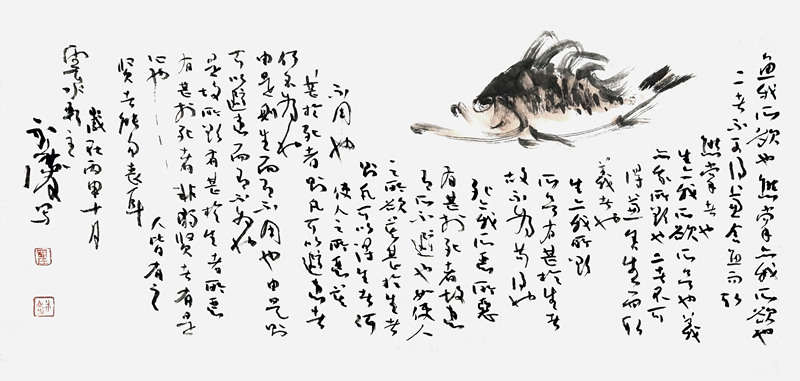 鱼我所欲也熊掌亦我所欲也
二者不可得兼舍鱼而取
熊掌者也
生亦我所欲也義
亦我所欲也二者不可
得兼舍生而取
義者也
生亦我所欲
所欲有甚於生者
故不为苟得也
死亦我所惡所惡
有甚於死者故患
有所不避也如使人
之所欲莫甚於生者
则凡可以得生者何
不用也
使人之所惡莫
甚於死者则凡可以避患者
何不为也
由是则生而有不用也由是则
可以避患而有不为也
是故所欲有甚於生者所惡
有甚於死者非獨賢者有是
心也
人皆有之
賢者能勿喪耳
歲在丙申十月
雲水軒主
写